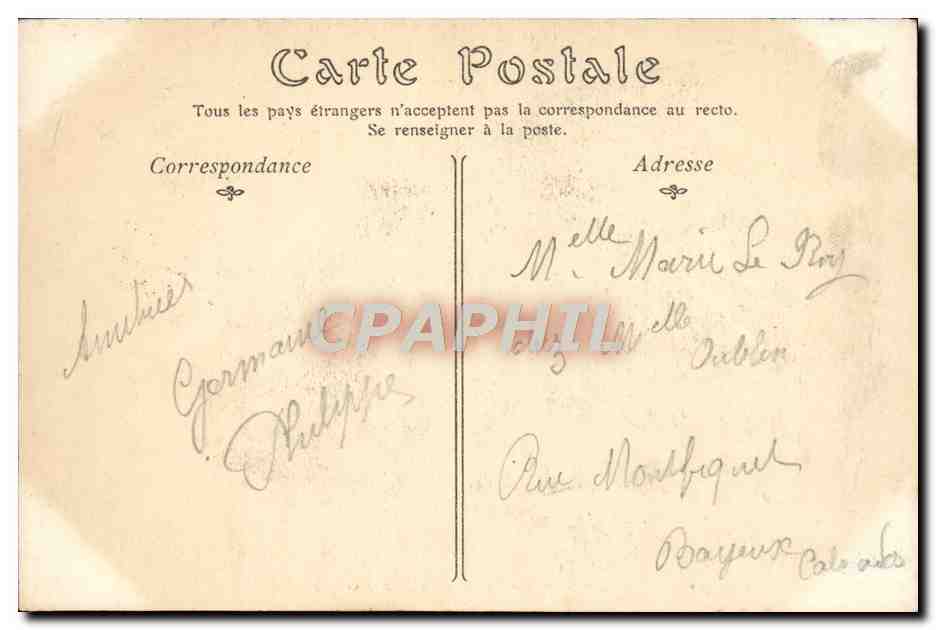 Carte Postale
Tous les pays étrangers n'acceptent pas la correspondance au recto.
Se renseigner à la poste.
Correspondance
Adresse
Amitiés
Germaine
Philippe
Melle Marie Le Roy
chez Melle
Oublin
Rue Montfiquet
Bayeux Calvados
CPAPHIL